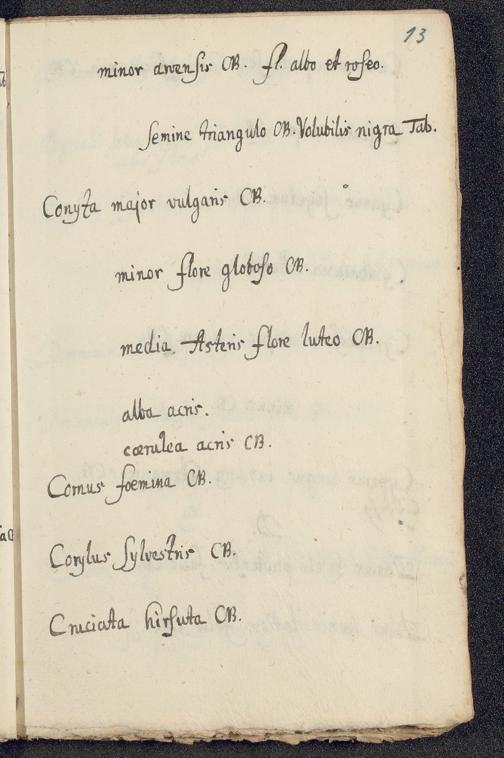 13
minor arvensis CB. fl. albo et roseo.
semine triangulo CB. Volubilis nigra Tab.
Conyza major vulgaris CB.
minor flore globoso CB.
media Asteris flore luteo CB.
alba acris.
cœrulea acris CB.
Cornus fœmina CB.
Corylus sylvestris CB.
Cruciata hirsuta CB.